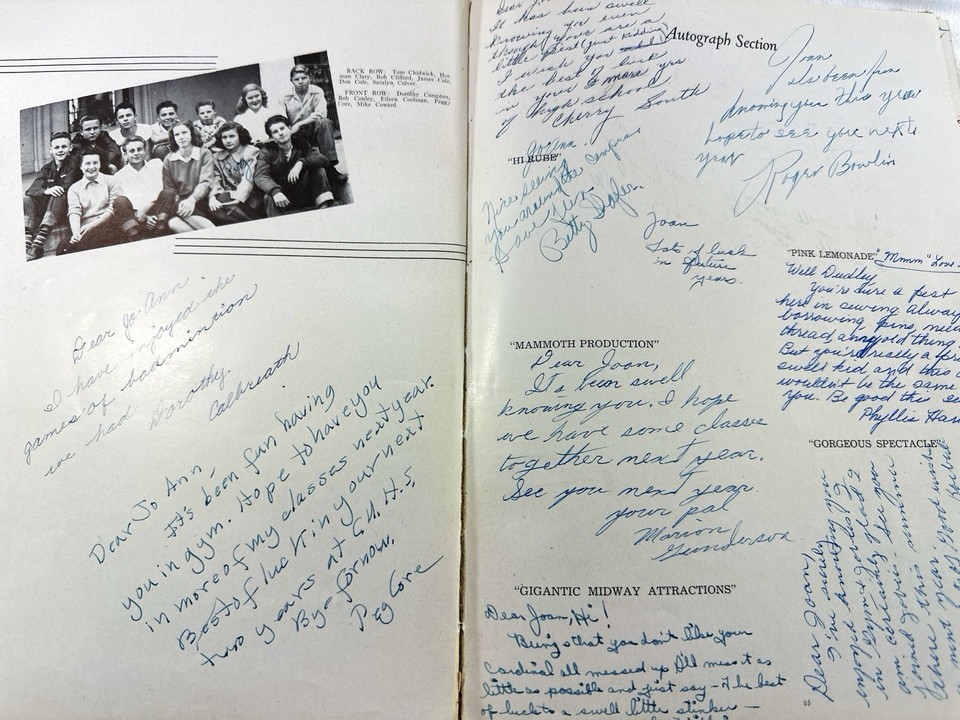 BACK ROW: Tom Chidwick, Hor-
man Clary, Bob Clifford, James Cole,
Don Cole, Saralyn Colver.
FRONT ROW: Dorothy Compton,
Bob Conley, Eileen Coulman, Peggy
Core, Mike Coward.
Peggy
Dear Jo Ann
I have enjoyed the
games of badmintion
we had Dorothy.
Calbreath
Dear Jo Ann,
It's been fun having
you in gym. Hope to have you
in more of my classes next year.
Best of luck in your next
two years at G.H.S.
Bye for now,
Peg Core
Autograph Section
It has been swell
knowing you even
though you are a
little Pest (just kidding)
I wish you
the best of luck
in your 2 more yrs
of high school
Cherry South
Joan
Its been fun
knowing you this year
hope to see you next
year
Roger Bowlin
"HI RUBE"
Jo Ann.
Nice seeing
you around the campus
Betty
Joan
Lots of luck
in future
years.
"PINK LEMONADE" "Mmm" Love
Well Dudley
You're sure a pest
here in sewing always
borrowing pins,
thread any old thing.
But you're really a
swell kid and this
wouldn't be the same
you. Be good this
Phyllis
"MAMMOTH PRODUCTION"
Dear Joan,
It's been swell
knowing you. I hope
we have some classes
together next year.
See you next year
your pal
Marion
Gunderson
"GORGEOUS SPECTACLE"
Dear Joan,
I've knowing you
enjoyed
in Gym & for
certainly see you
around this summer
next year. Good
"GIGANTIC MIDWAY ATTRACTIONS"
Dear Joan, Hi!
Being that you don't like your
Cardinal all messed up I'll mess it as
little as possible and just say - The best
of luck to a swell little stinker -
65